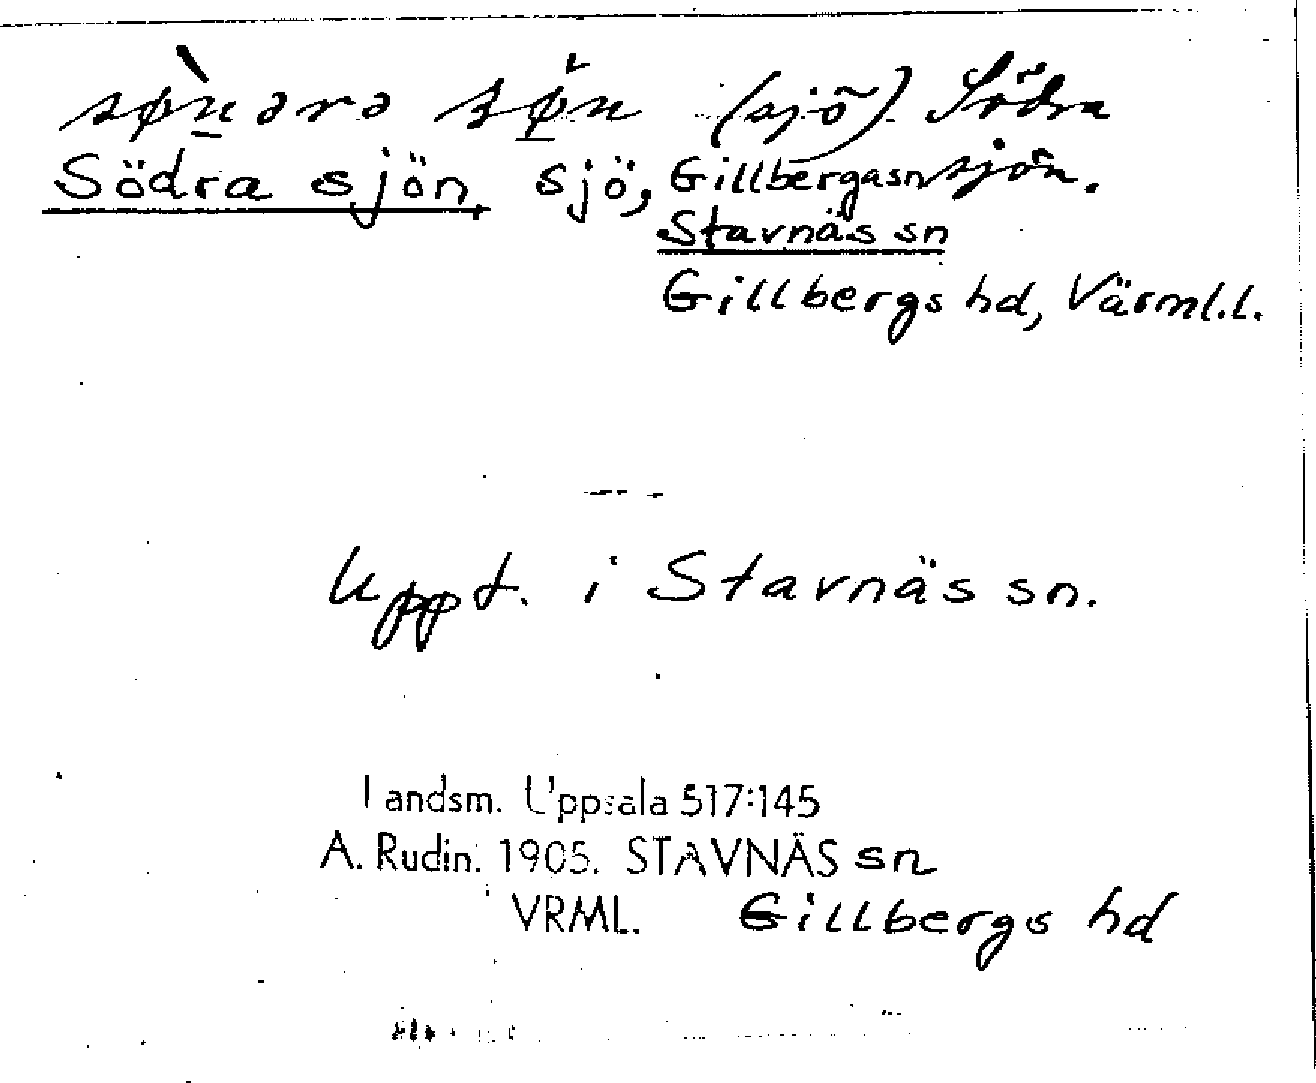 (sjö) Södra
Södra sjön, sjö, Gillbergasn sjön.
Stavnäs sn
Gillbergs hd, Värml.l.
Uppt. i Stavnäs sn.
Landsm. Uppsala 517:145
A. Rudin. 1905. STAVNÄS sn
VRML. Gillbergs hd